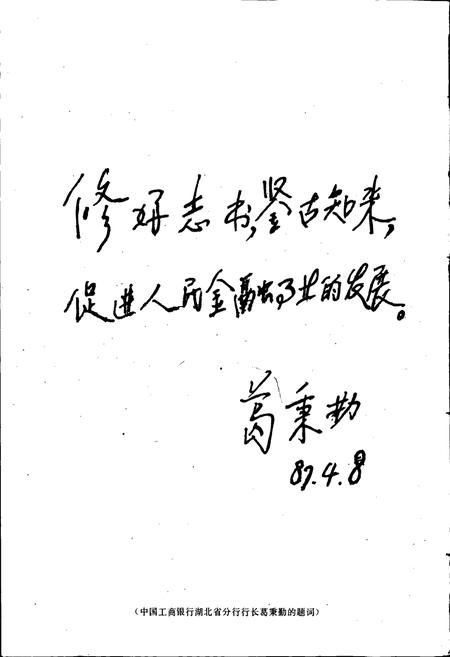 修好志书，鉴古知来，
促进人民金融事业的发展。
葛秉勤
87.4.8
（中国工商银行湖北省分行行长葛秉勤的题词）